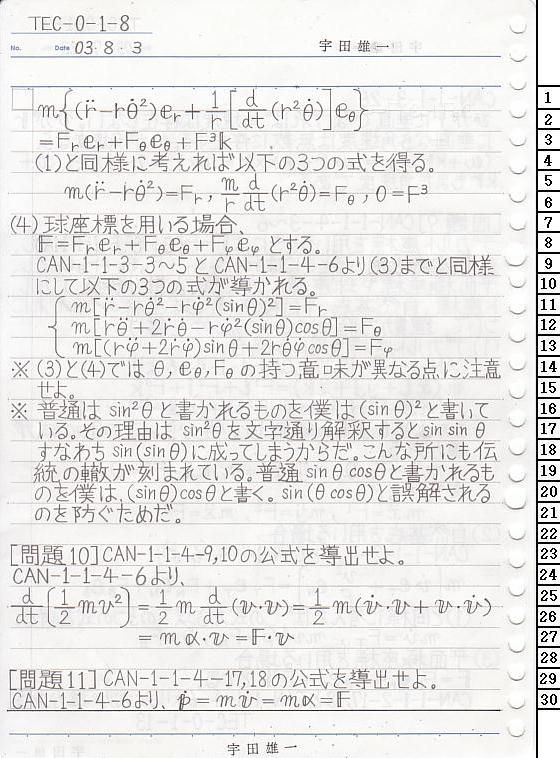 TEC-0-1-8
No. Date 03・8・3 宇田雄一
m{(r̈-rθ̇²)𝕖r+1/r[d/dt(r²θ̇)]𝕖θ}
=Fr𝕖r+Fθ𝕖θ+F³𝕜
(1)と同様に考えれば以下の3つの式を得る。
m(r̈-rθ̇²)=Fr, m/r d/dt(r²θ̇)=Fθ, 0=F³
(4)球座標を用いる場合、
𝔽=Fr𝕖r+Fθ𝕖θ+Fφ𝕖φ とする。
CAN-1-1-3-3~5とCAN-1-1-4-6より(3)までと同様
にして以下の3つの式が導かれる。
m[r̈-rθ̇²-rφ̇²(sinθ)²]=Fr
m[rθ̈+2ṙθ̇-rφ̇²(sinθ)cosθ]=Fθ
m[(rφ̈+2ṙφ̇)sinθ+2rθ̇φ̇cosθ]=Fφ
※(3)と(4)ではθ,𝕖θ,Fθの持つ意味が異なる点に注意
せよ。
※ 普通はsin²θと書かれるものを僕は(sinθ)²と書いて
いる。その理由はsin²θを文字通り解釈するとsin sinθ
すなわちsin(sinθ)に成ってしまうからだ。こんな所にも伝
統の轍が刻まれている。普通sinθcosθと書かれるも
のを僕は、(sinθ)cosθと書く。sin(θcosθ)と誤解される
のを防ぐためだ。
[問題10]CAN-1-1-4-9,10の公式を導出せよ。
CAN-1-1-4-6より、
d/dt(1/2 m𝕧²)=1/2 m d/dt(𝕧・𝕧)=1/2 m(𝕧̇・𝕧+𝕧・𝕧̇)
=m𝕒・𝕧=𝔽・𝕧
[問題11]CAN-1-1-4-17,18の公式を導出せよ。
CAN-1-1-4-6より、𝕡̇=m𝕧̇=m𝕒=𝔽
宇田雄一
1
2
3
4
5
6
7
8
9
10
11
12
13
14
15
16
17
18
19
20
21
22
23
24
25
26
27
28
29
30